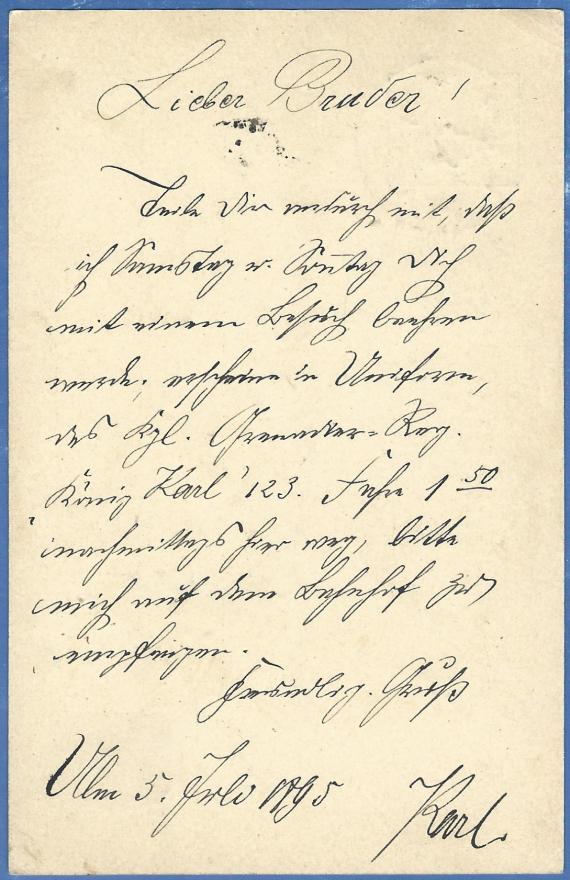 Lieber Bruder!
Teile Dir andurch mit, daß
ich Samstag u. Sontag Dich
mit einem Besuch beehren
werde; erscheine in Uniform,
des Kgl. Grenadier-Reg.
König Karl 123. Fahre 1 50
nachmittags hier weg, bitte
mich auf dem Bahnhof zu
empfangen.
Freundlig. Gruß
Ulm 5. Juli 1895 Karl.